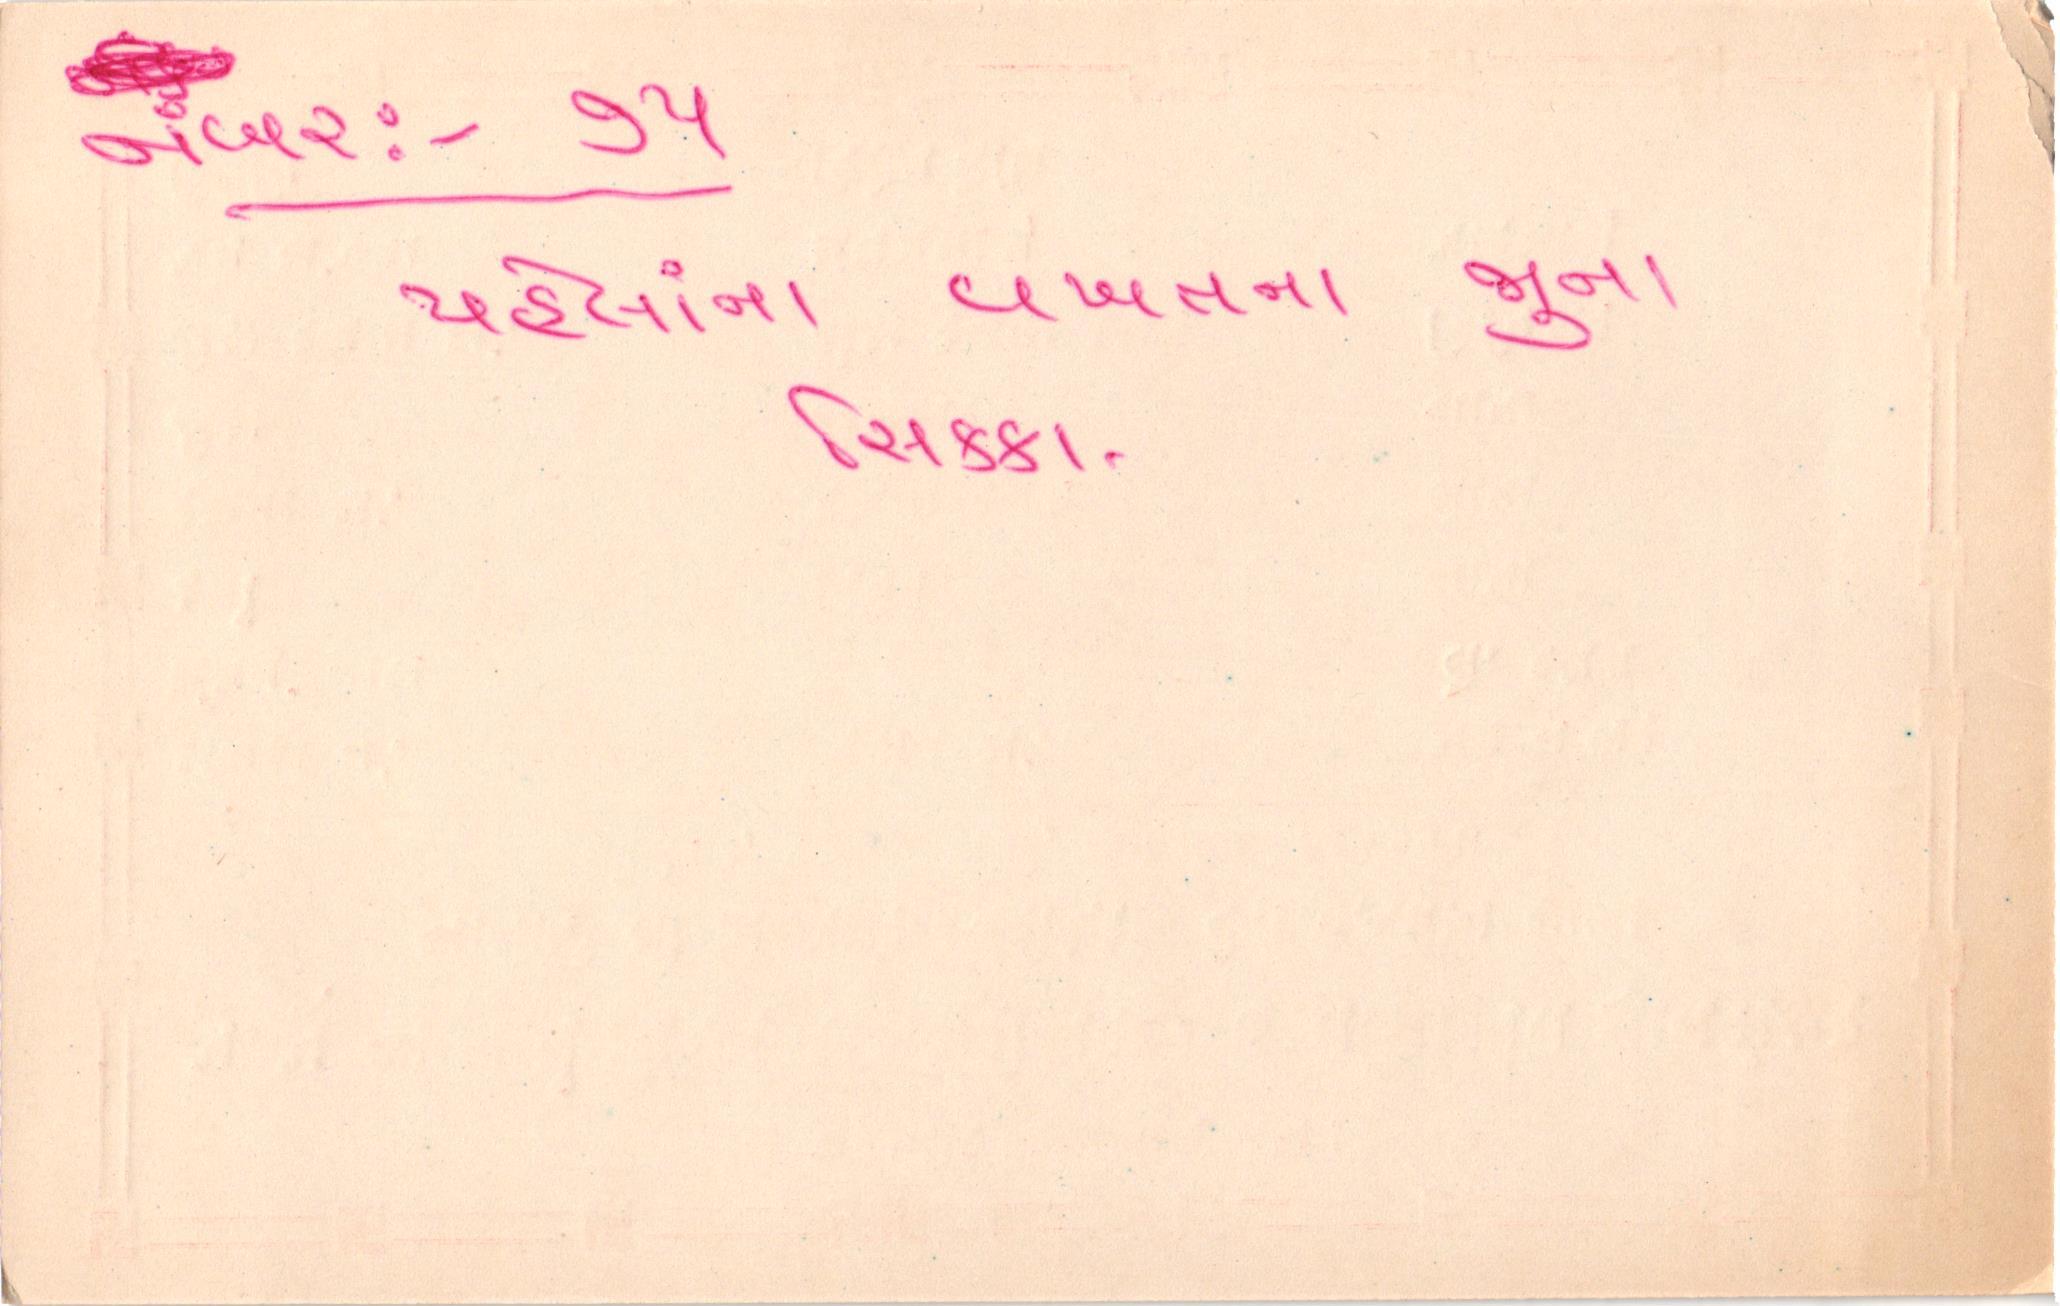 નંબર:- ૭૫
પહેલાંના વખતના જુના
સિક્કા.